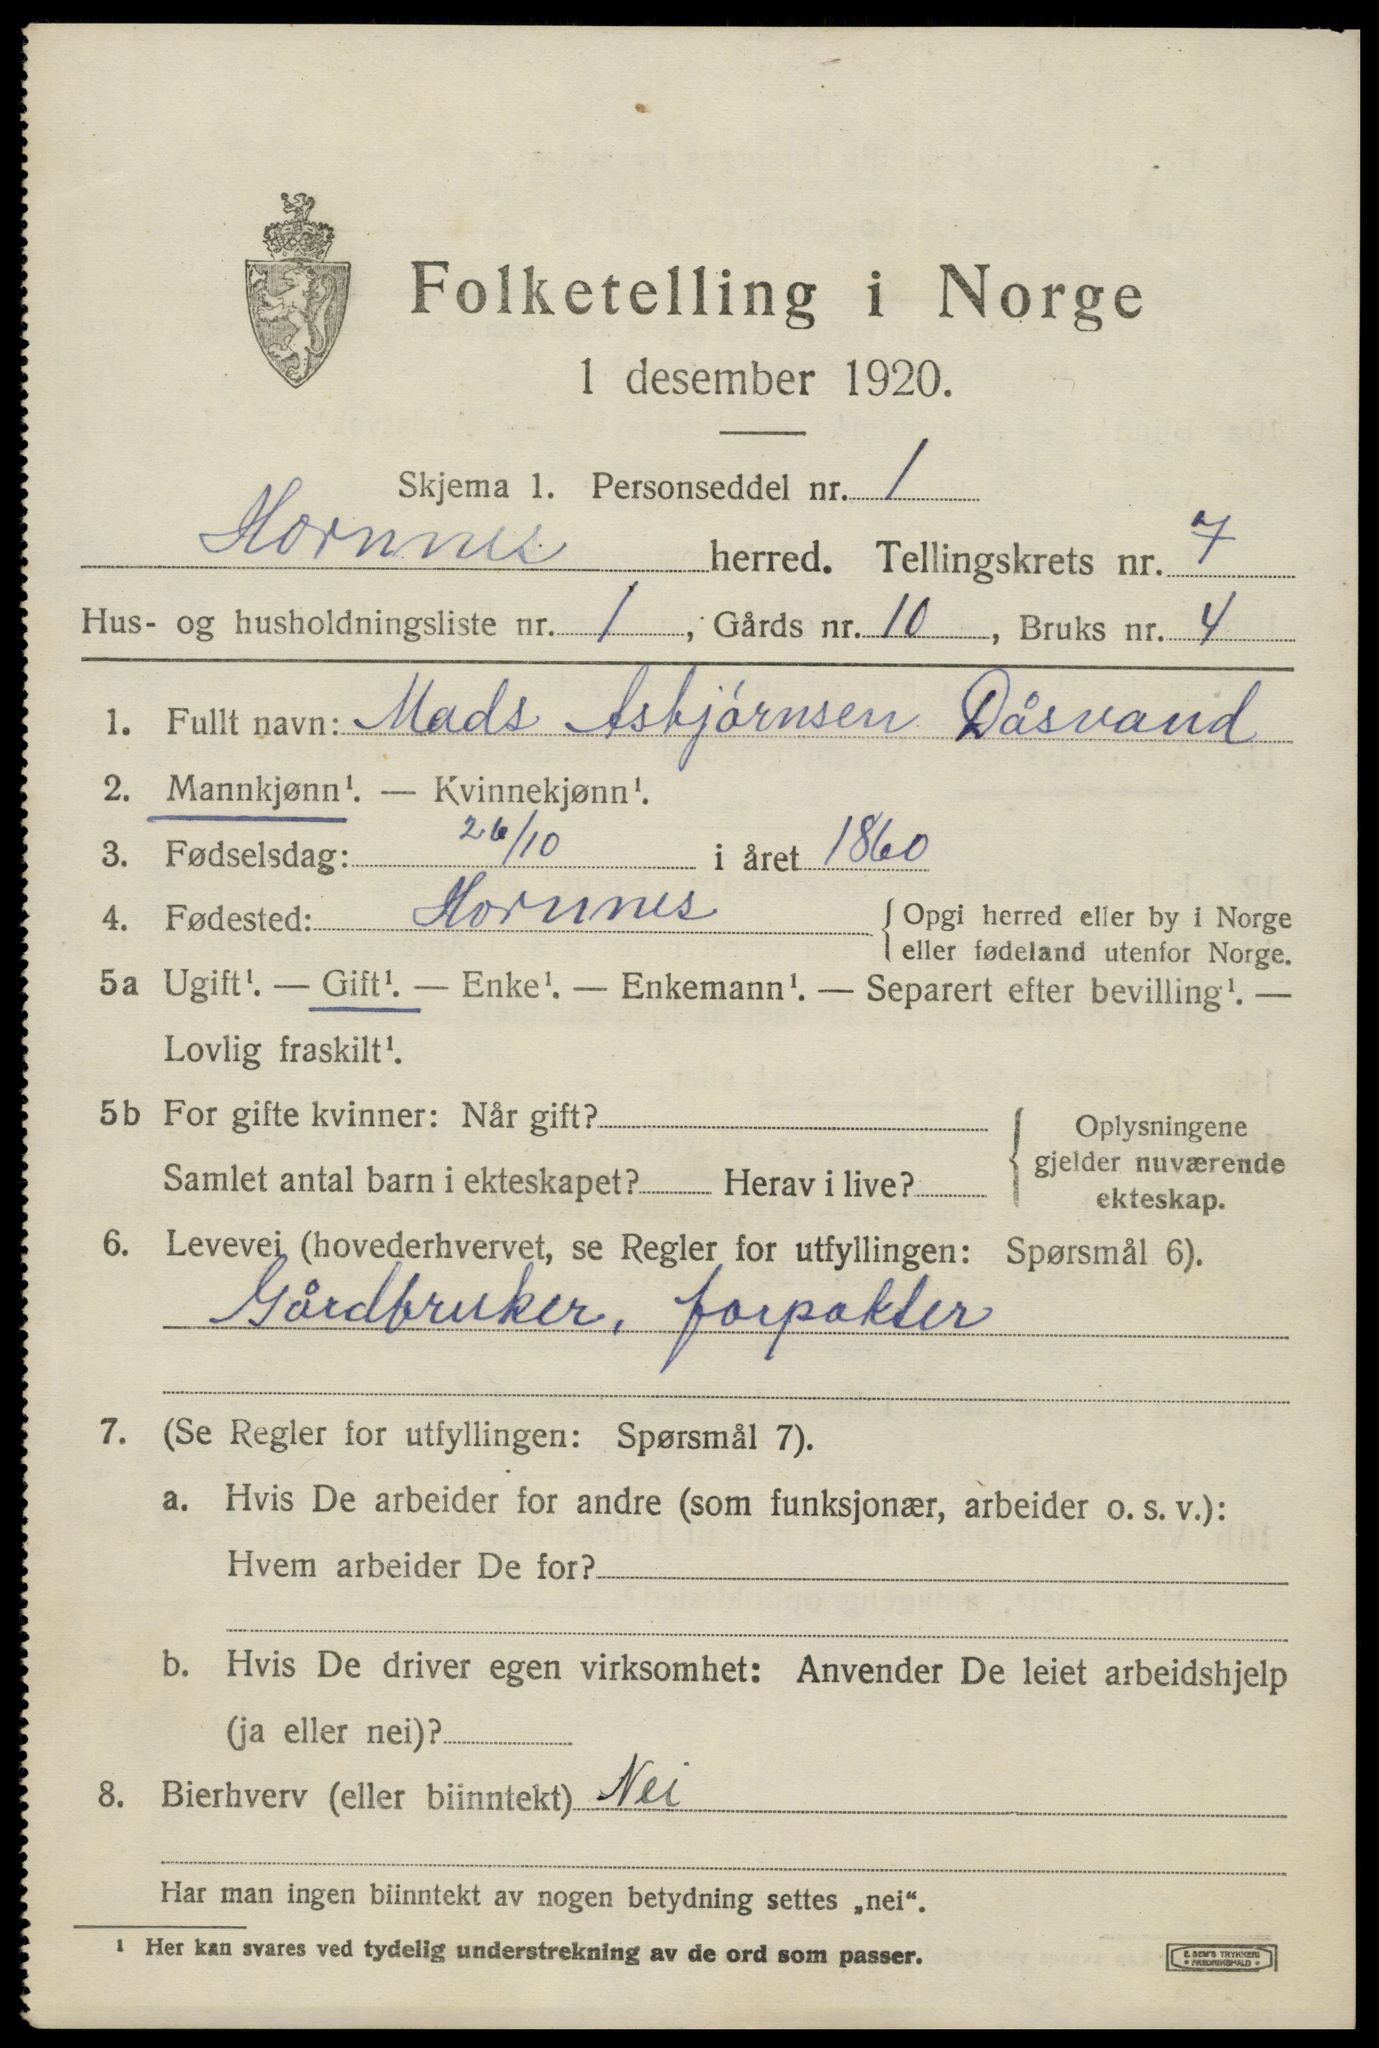 Folketelling i Norge
1 desember 1920.
Skjema 1. Personseddel nr. 1
Hornnes herred. Tellingskrets nr. 7
Hus- og husholdningsliste nr. 1, Gårds nr. 10, Bruks nr. 4
1. Fullt navn: Mads Asbjørnsen Dåsvand
2. Mannkjønn¹. — Kvinnekjønn¹.
3. Fødselsdag: 26/10 i året 1860
4. Fødested: Hornnes { Opgi herred eller by i Norge
eller fødeland utenfor Norge.
5a Ugift¹. — Gift¹. — Enke¹. — Enkemann¹. — Separert efter bevilling¹. —
Lovlig fraskilt¹.
5b For gifte kvinner: Når gift? { Oplysningene
gjelder nuværende
Samlet antal barn i ekteskapet? Herav i live? ekteskap.
6. Levevei (hovederhvervet, se Regler for utfyllingen: Spørsmål 6).
Gårdbruker, forpakter
7. (Se Regler for utfyllingen: Spørsmål 7).
a. Hvis De arbeider for andre (som funksjonær, arbeider o. s. v.):
Hvem arbeider De for?
b. Hvis De driver egen virksomhet: Anvender De leiet arbeidshjelp
(ja eller nei)?
8. Bierhverv (eller biinntekt) Nei
Har man ingen biinntekt av nogen betydning settes „nei“.
¹ Her kan svares ved tydelig understrekning av de ord som passer.
E. SEM'S TRYKKERI
FREDRIKSHALD